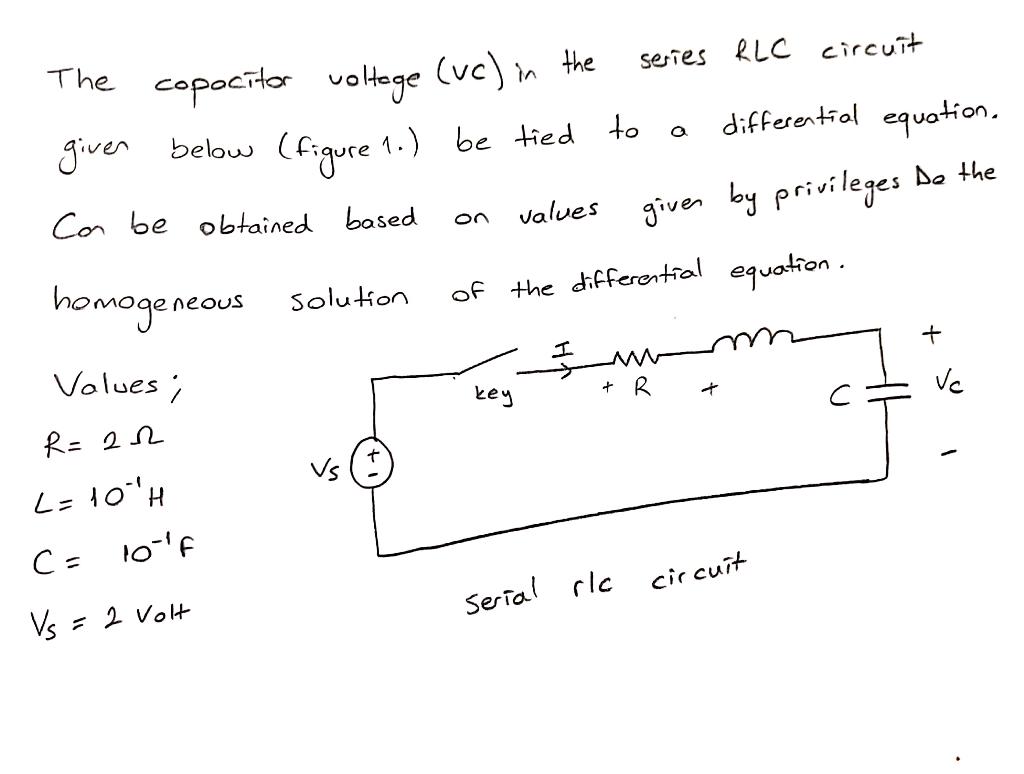 The capacitor voltage (VC) in the series RLC circuit
given below (figure 1.) be tied to a differential equation.
Can be obtained based on values given by privileges Do the
homogeneous solution of the differential equation.
Values;
R = 2 Ω
L = 10⁻¹ H
C = 10⁻¹ F
Vs = 2 Volt
key
I
+ R
+
C
+
Vc
-
Vs
+
-
Serial rlc circuit